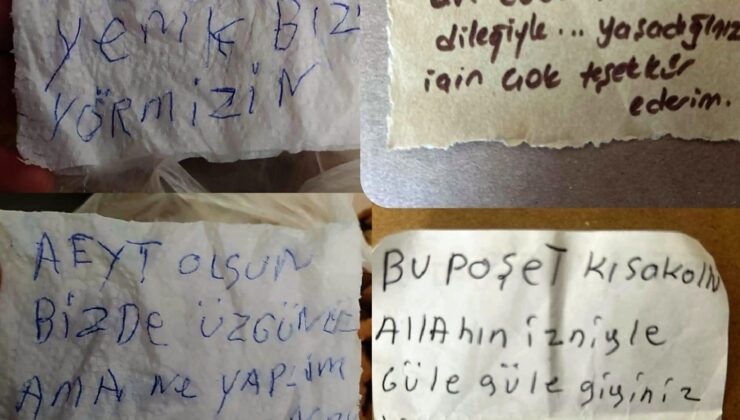 YENİK BİZİ
YÖRMİZİN
dileğiyle... yaşadığınız
için çok teşekkür
ederim.
AEYT OLSUN
BİZDE ÜZGÜNÜZ
AMA NE YAPLIM
BU POŞET KISAKOLN
AllAhın izniyle
Güle güle giyiniz